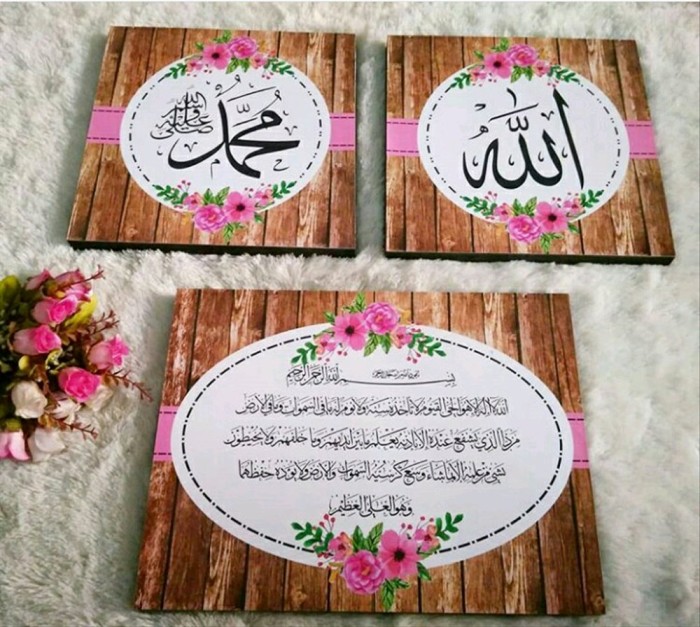 محمد
صلى الله عليه وسلم
الله
بسم الله الرحمن الرحيم
الله لا إله إلا هو الحي القيوم لا تأخذه سنة ولا نوم له ما في السموات وما في الأرض
من ذا الذي يشفع عنده إلا بإذنه يعلم ما بين أيديهم وما خلفهم ولا يحيطون
بشيء من علمه إلا بما شاء وسع كرسيه السموات والأرض ولا يؤده حفظهما
وهو العلي العظيم